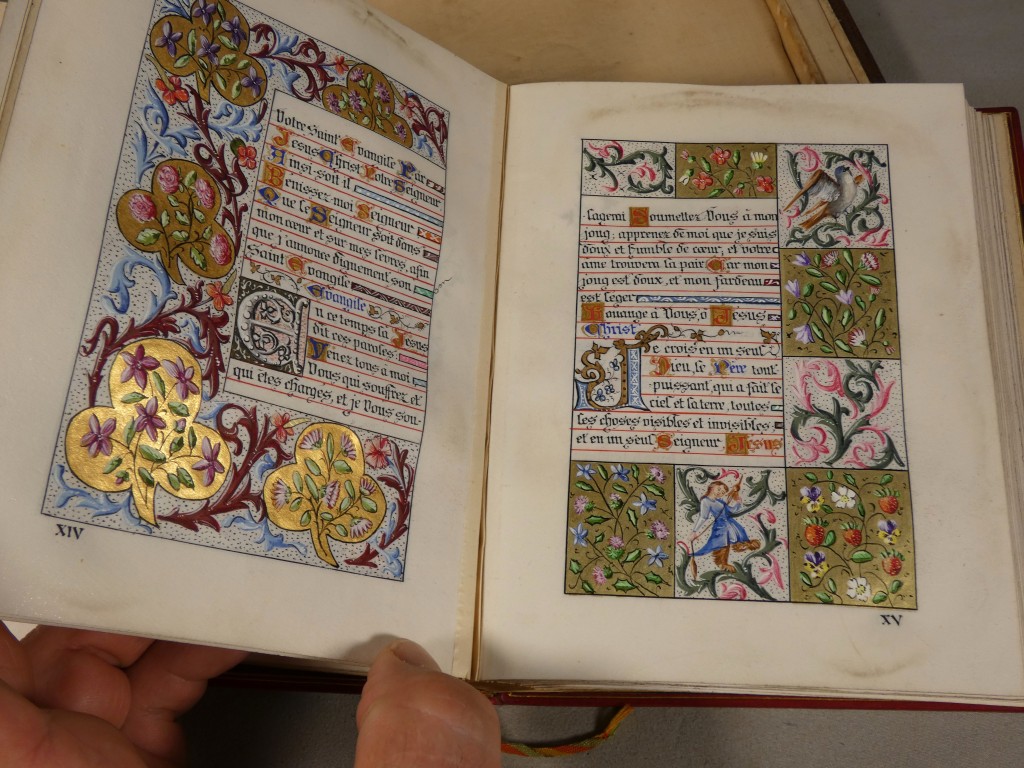 Votre saint Evangile Par
Jesus Christ Notre Seigneur
Ainsi soit il
Benissez-moi Seigneur
Que le Seigneur soit dans
mon cœur et sur mes levres, afin
que j'annonce dignement son
Saint Evangile
Evangile
En ce temps là Jesus
dit ces paroles:
Venez tous a moi
Vous qui souffrez et
qui êtes chargés, et je Vous sou-
XIV
-lagerai Soumettez Vous à mon
joug; apprenez de moi que je suis
doux et humble de cœur, et votre
ame trouvera la paix Car mon
joug est doux, et mon fardeau
est leger
Louange à Vous, ô Jesus
Christ
Je crois en un seul
Dieu, le Père tout
puissant, qui a fait le
ciel et la terre, toutes
les choses visibles et invisibles,
et en un seul Seigneur Jesus
XV